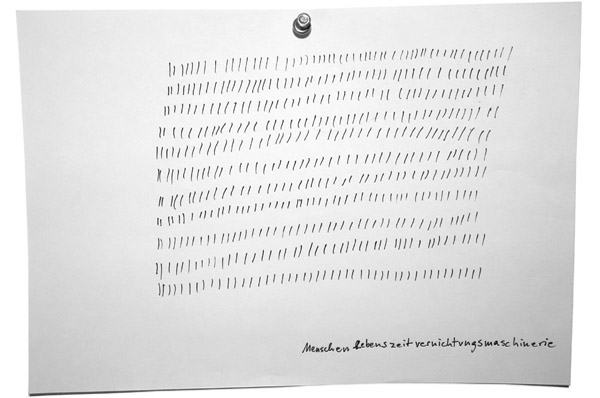 Menschen lebenszeitvernichtungsmaschinerie